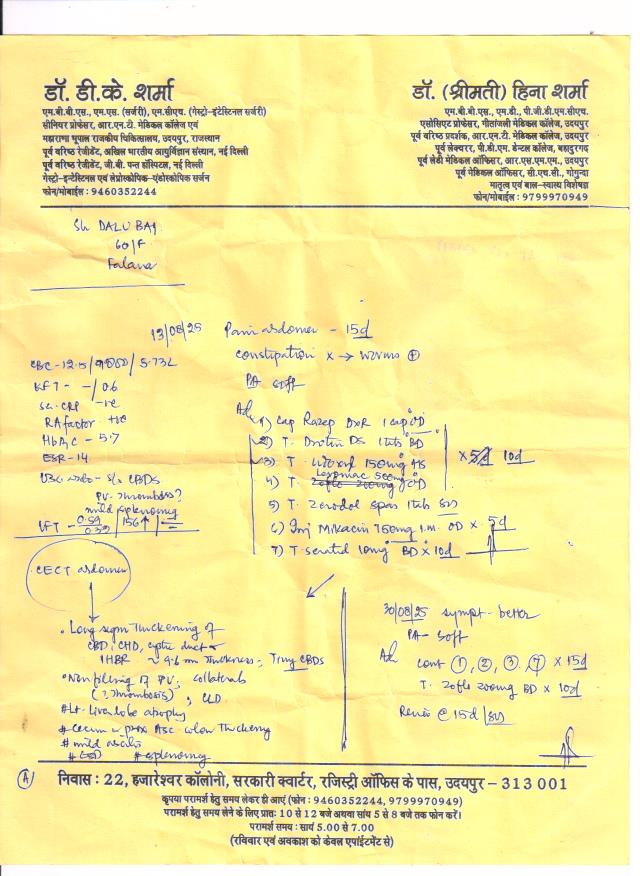 डॉ. डी.के. शर्मा
एम.बी.बी.एस., एम.एस. (सर्जरी), एम.सीएच. (गेस्ट्रो-इंटेस्टिनल सर्जरी)
सीनियर प्रोफेसर, आर.एन.टी. मेडिकल कॉलेज एवं
महाराणा भूपाल राजकीय चिकित्सालय, उदयपुर, राजस्थान
पूर्व वरिष्ठ रेजीडेंट, अखिल भारतीय आयुर्विज्ञान संस्थान, नई दिल्ली
पूर्व वरिष्ठ रेजीडेंट, जी.बी. पन्त हॉस्पिटल, नई दिल्ली
गेस्ट्रो-इन्टेस्टिनल एवं लेप्रोस्कोपिक-एंडोस्कोपिक सर्जन
फोन/मोबाईल : 9460352244
डॉ. (श्रीमती) हिना शर्मा
एम.बी.बी.एस., एम.डी., पी.जी.डी.एम.सीएच.
एसोसिएट प्रोफेसर, गीतांजली मेडिकल कॉलेज, उदयपुर
पूर्व वरिष्ठ प्रदर्शक, आर.एन.टी. मेडिकल कॉलेज, उदयपुर
पूर्व लेक्चरर, पी.डी.एम. डेन्टल कॉलेज, बहादुरगढ़
पूर्व लेडी मेडिकल ऑफिसर, आर.एस.एम.एम., उदयपुर
पूर्व मेडिकल ऑफिसर, सी.एच.सी., गोगुन्दा
मातृत्व एवं बाल-स्वास्थ्य विशेषज्ञ
फोन/मोबाईल : 9799970949
DALU BAI
60/F
Falana
13/08/25 Pain abdomen - 15d
Constipation x → worms +
PA soft
CBC - 12.5/ / 5.73L
KFT - -/0.6
CRP -ve
RA factor - +ve
HbA1c - 5.7
ESR - 14
CBDS
PV thrombosis?
mild splenomeg
LFT - 0.59 / 156↑
Adv 1) Cap Razep DXR 1 cap OD
2) T. Drotin DS 1tab BD
3) T. 150mg HS
4) T. 500mg OD
x 5d 10d
5) T. Zerodol spas 1tab
6) Inj Mikacin 750mg i.m. OD x 5d
7) T. 10mg BD x 10d
CECT abdomen
• Long segm thickening of
CBD, CHD, cystic duct
IHBR ~ 4.6 mm thickness, Tiny CBDS
• Non filling of PV, collaterals
(? Thrombosis), CLD
# Lt liver lobe atrophy
# Cecum & prox Asc colon thickening
# mild ascites
# splenomeg
30/08/25 sympt - better
PA - soft
Adv cont 1, 2, 3, 7 x 15d
T. Zoflo 200mg BD x 10d
Review @ 15d
A
निवास : 22, हजारेश्वर कॉलोनी, सरकारी क्वार्टर, रजिस्ट्री ऑफिस के पास, उदयपुर - 313 001
कृपया परामर्श हेतु समय लेकर ही आएं (फोन : 9460352244, 9799970949)
परामर्श हेतु समय लेने के लिए प्रातः 10 से 12 बजे अथवा सायं 5 से 8 बजे तक फोन करें।
परामर्श समय : सायं 5.00 से 7.00
(रविवार एवं अवकाश को केवल एपॉइंटमेंट से)